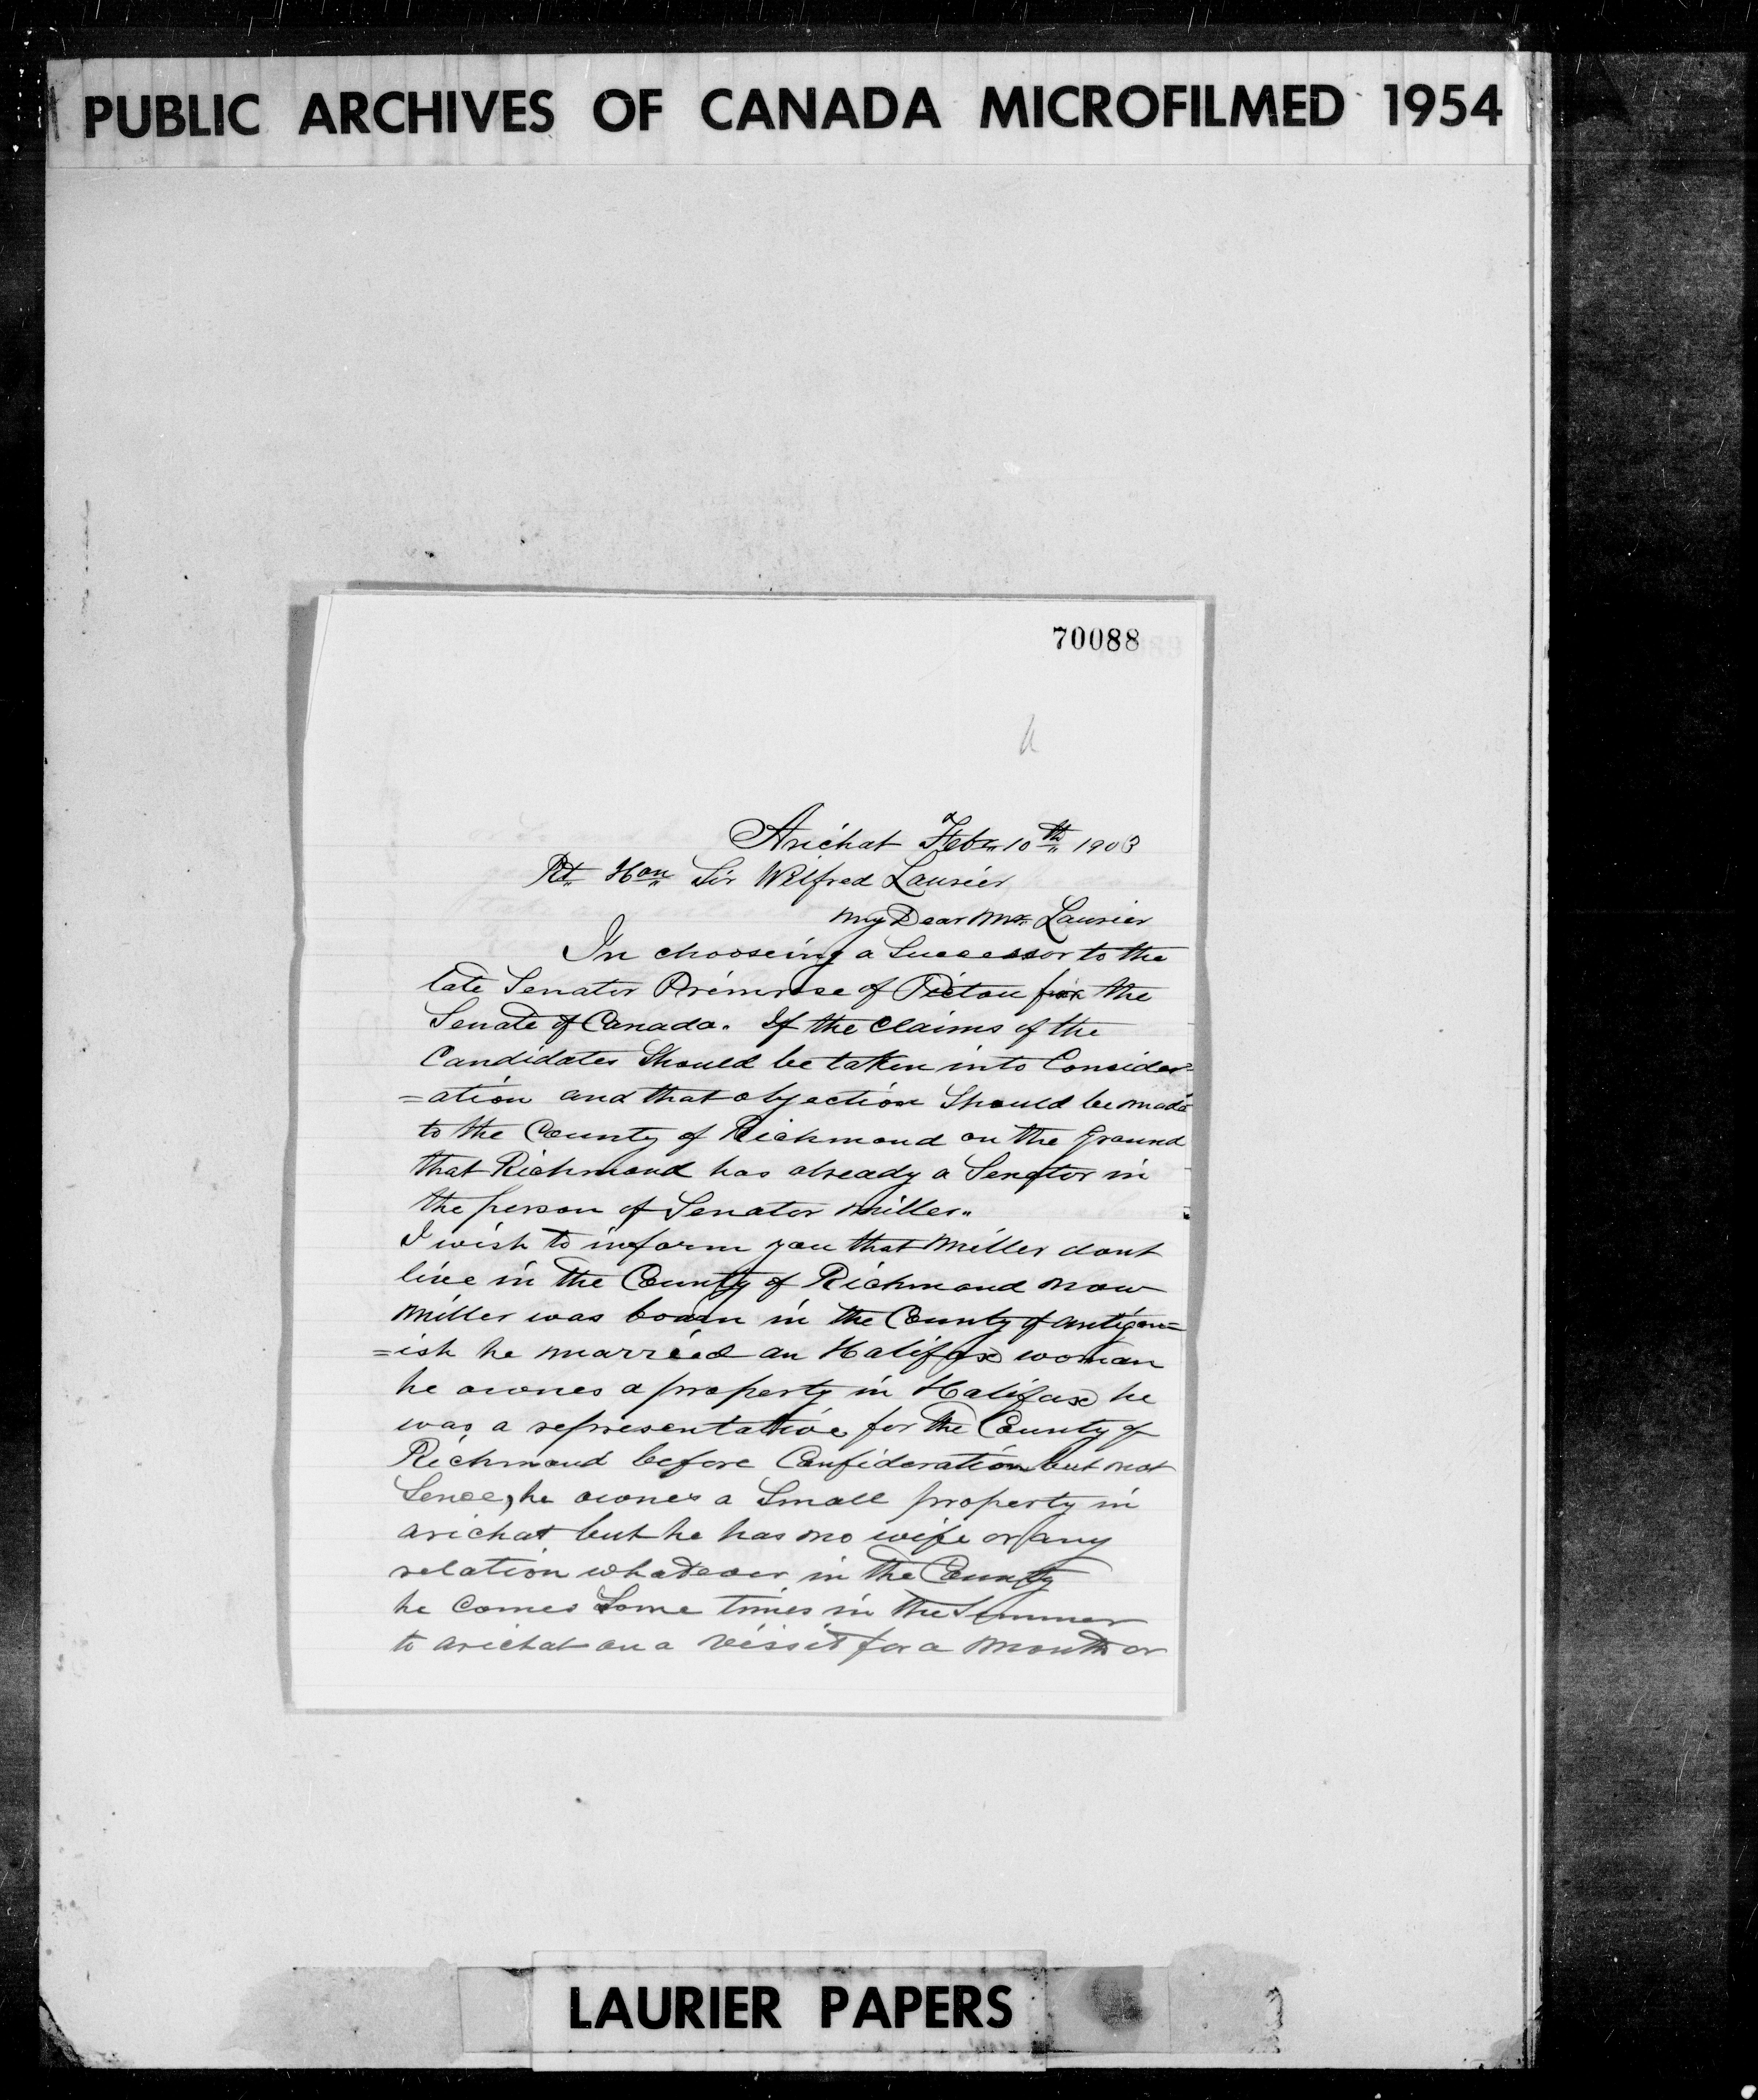 PUBLIC ARCHIVES OF CANADA MICROFILMED 1954
70088
Arichat Feby 10th 1903
Rt Hon Sir Wilfred Laurier
My Dear Mr Laurier
In chooseing a Successor to the
late Senator Primrose of Pictou for the
Senate of Canada. If the Claims of the
Candidates Should be taken into Consider=
=ation and that objection Should be made
to the County of Richmond on the ground
that Richmond has already a Senator in
the person of Senator Miller.
I wish to inform you that Miller dont
live in the County of Richmond now
Miller was born in the County of antigon=
=ish he married an Halifax woman
he ownes a property in Halifax he
was a representative for the County of
Richmond before Confideration but not
Sence, he ownes a Small property in
arichat but he has no wife or any
relation whatever in the County
he Comes Some times in the Summer
to arichat on a vissit for a month or
LAURIER PAPERS